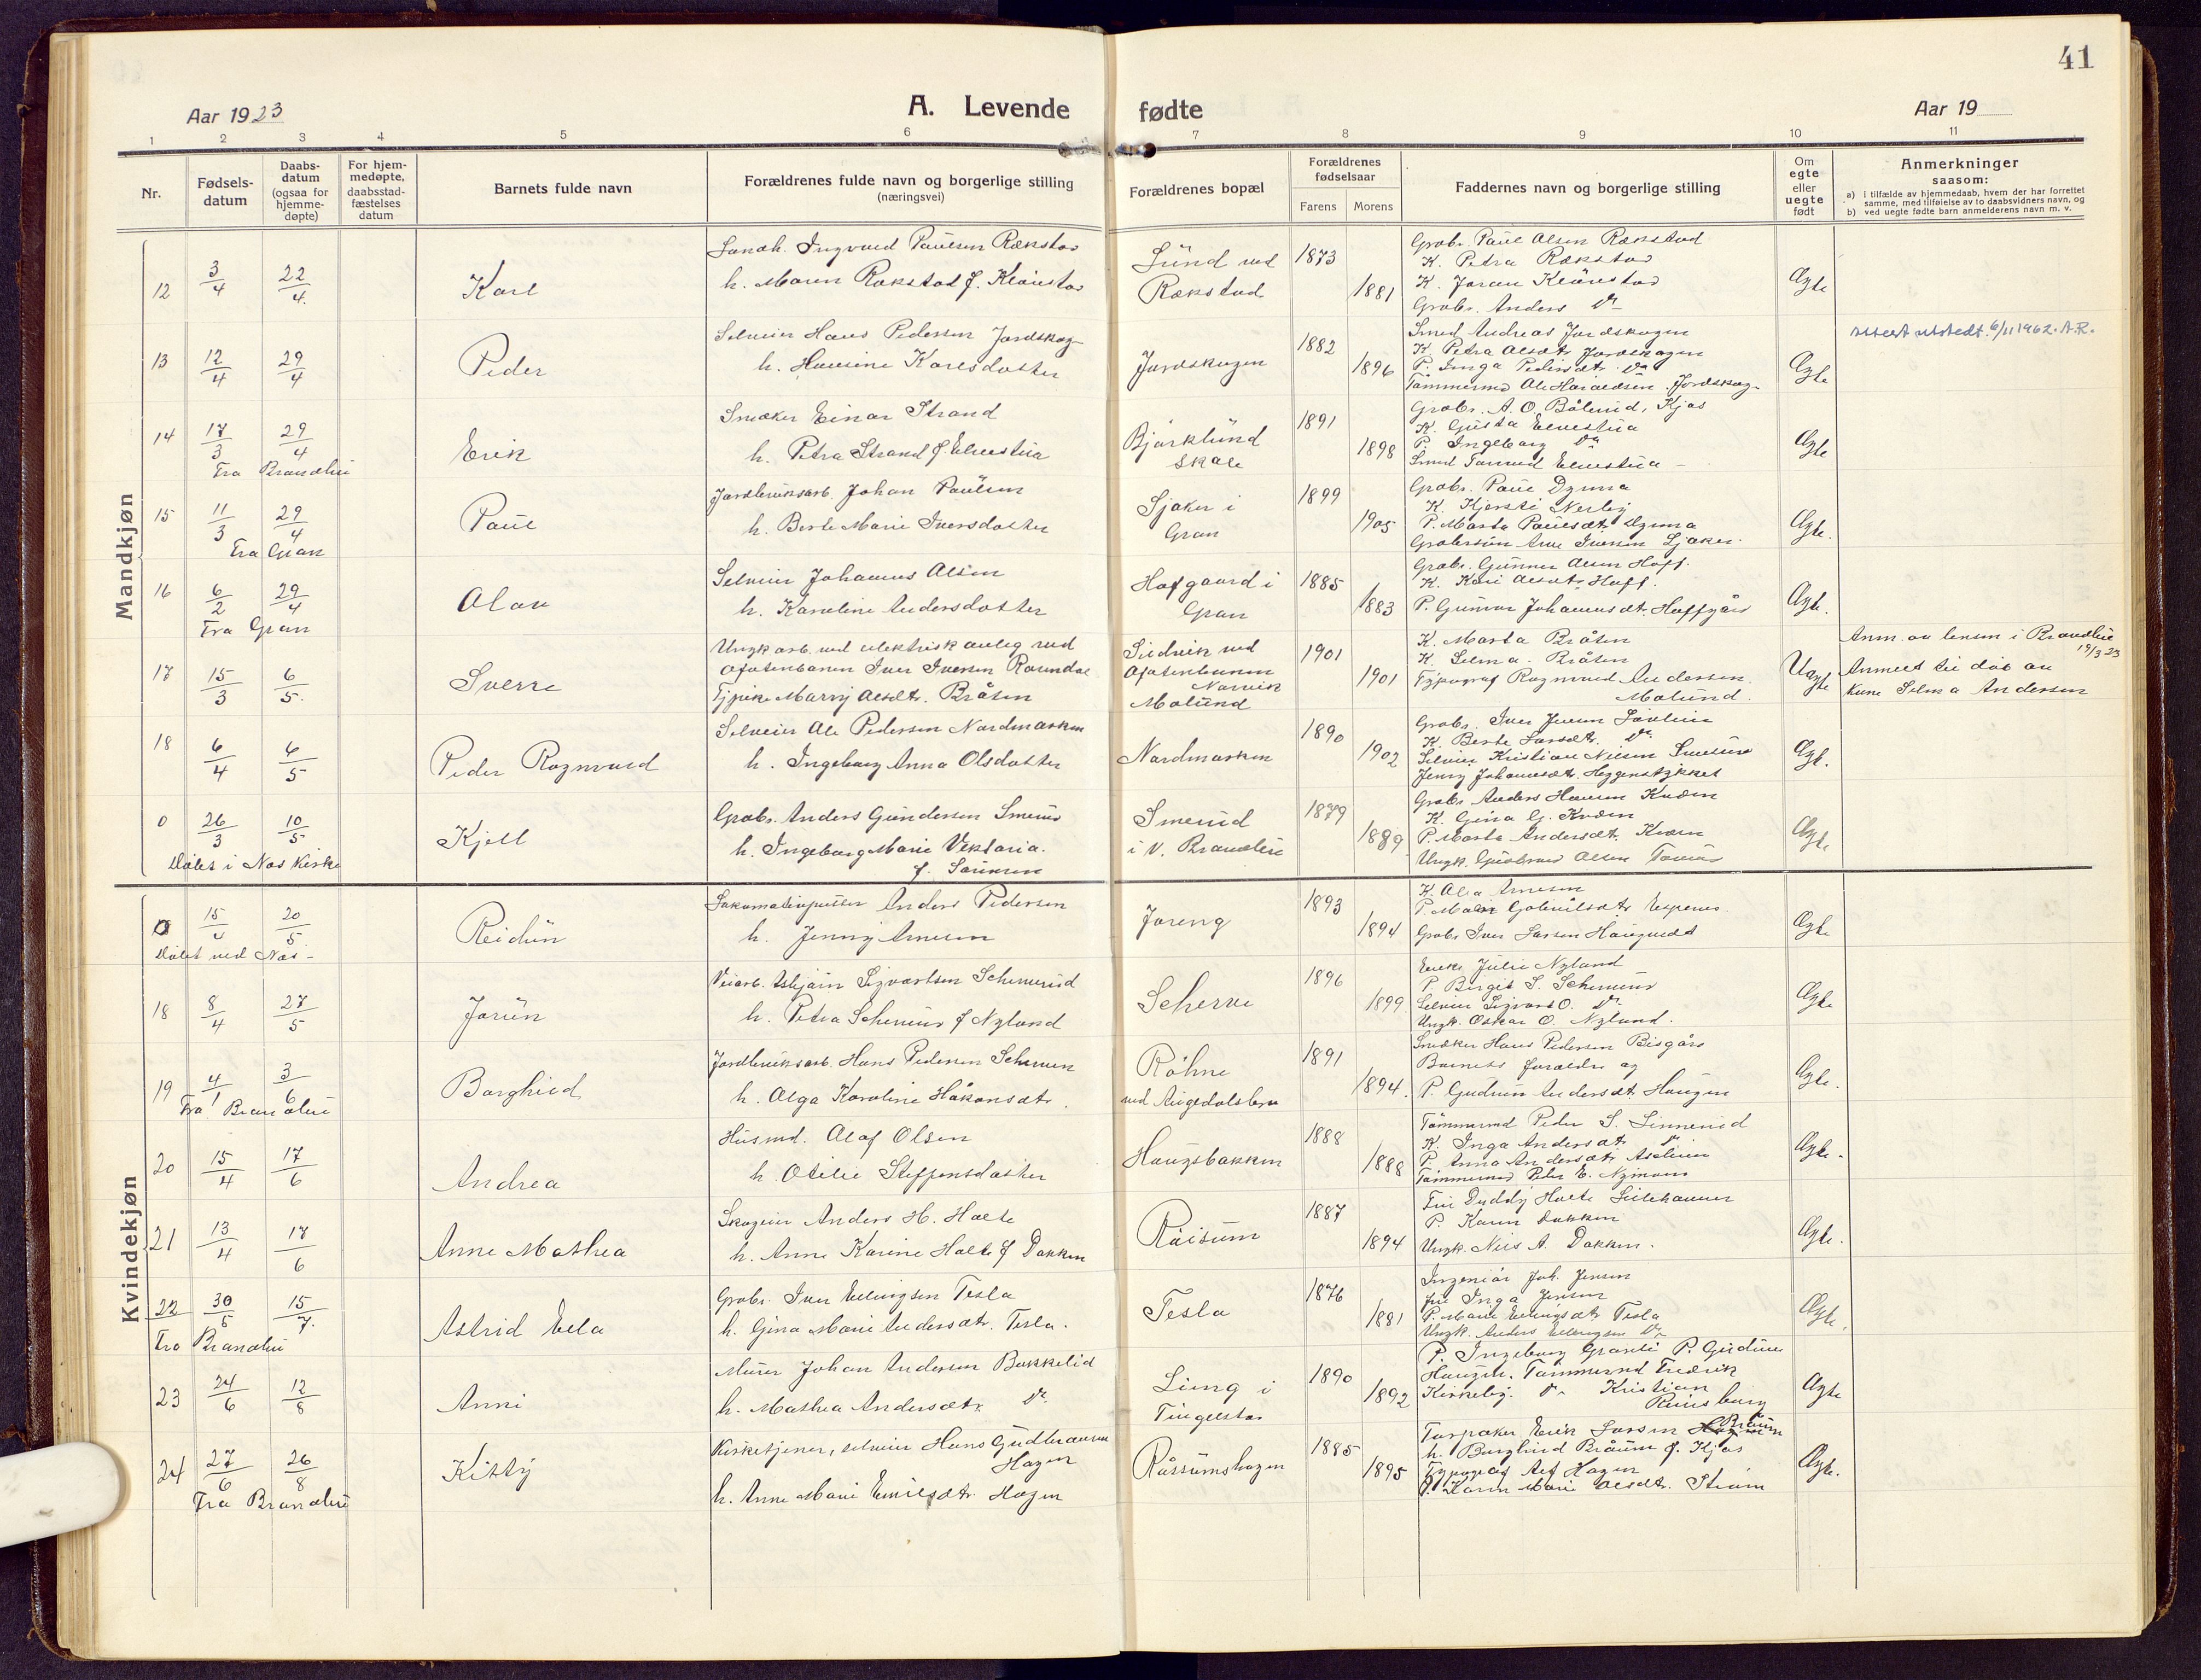 41
Aar 1923
A. Levende fødte
Aar 19
1 2 3 4 5 6 7 8 9 10 11
Nr.
Fødsels-datum
Daabs-datum (ogsaa for hjemme-døpte)
For hjem-medøpte, daabsstad-fæstelses datum
Barnets fulde navn
Forældrenes fulde navn og borgerlige stilling (næringsvei)
Forældrenes bopæl
Forældrenes fødselsaar
Farens Morens
Faddernes navn og borgerlige stilling
Om egte eller uegte født
Anmerkninger
saasom:
a) i tilfælde av hjemmedaab, hvem der har forrettet samme, med tilføielse av to daabsvidners navn, og
b) ved uegte fødte barn anmelderens navn m. v.
Mandkjøn
12 3/4 22/4 Karl
Ingvald Paulsen Rækstad
h. Maren Rækstad f. Kløvstad
Lund ved Rækstad
1873 1881
Grabr. Paul Olsen Rækstad
K. Petra Rækstad
K. Joran Kløvstad
Grabr. Anders do
Ægte
13 12/4 29/4 Peder
Selveier Hans Pedersen Jordskog
h. Hansine Karlsdatter
Jordskogen
1882 1896
Smed Andreas Jordskogen
K. Petra Olsdtr. Jordskogen
P. Inga Pedersdtr. do
Tømmermd Ole Haraldsen Jordskog
Ægte
Attest utstedt 6/11 1962. A.R.
14 17/3 29/4 Erik
Fra Brandbu
Snedker Einar Strand
h. Petra Strand f. Elvestua
Bjørklund
Skole
1891 1898
Grabr. A. O. Bølerud, Kjos
K. Gusta Elvestua
P. Ingeborg do
Smed Elvestua
Ægte
15 11/3 29/4 Paul
Fra Gran
Jordbruksarb. Johan Paulsen
h. Berte Marie Iversdatter
Sjaker i Gran
1899 1905
Grabr. Paul Dynna
K. Kjersti Nerby
P. Marta Paulsdtr. Dynna
Grabersøn Arne Iversen Sjaker
Ægte.
16 6/2 29/4 Olav
Fra Gran
Selveier Johannes Olsen
h. Karoline Andersdatter
Hofgaard i Gran
1885 1883
Grabr. Gunner Olsen Hoff.
K. Kari Olsdtr. Hoff.
P. Gunvor Johannesdt. Hoffgård
Ægte.
17 15/3 6/5 Sverre
Ungk. arb. ved elektrisk anleg ved
Ofotenbanen Iver Iversen Raundal
Tjpike Marry Olsdtr. Bråten
Sildvik ved
Ofotenbanen
Narvik
Molund
1901 1901
K. Marta Bråten
K. Selma Bråten
Typograf Ragnvald Andersen
Molund.
Uægte
Anm. av lensm i Brandbu 19/3 23
Anmeldt til dåb av
kone Selma Andersen
18 6/4 6/5 Peder Ragnvald
Selveier Ole Pedersen Nordmarken
h. Ingeborg Anna Olsdatter
Nordmarken
1890 1902
Grabr. Iver
K. Berte Larsdtr. do
Selveier Kristian Nilsen
Jenny Johannesdtr. Heggenstykket
Ægt.
0 26/3 10/5 Kjell
Døbt i Nes Kirke
Grabr. Anders Gundersen Smerud
h. Ingeborg Marie Viktoria
f. Sørensen
Smerud
i V. Brandbu
1879 1889
Grabr. Anders Hansen Kvæen
K. Gina G. Kvæen
P. Marte Andersdt. Kvæen
Ungk. Gulbrand Olsen
Ægte
Kvindekjøn
0 15/4 20/5 Reidun
Døbt ved Nes
Lokomotivpusser Anders Pedersen
h. Jenny Arnesen
Joreng
1893 1894
K. Olea Arnesen
P. Gabrielsdtr. Espenes
Grabr. Iver Larsen Haugvedt
Ægte
18 8/4 27/5 Jorun
Veiarb. Asbjørn Sigvartsen Schennerud
h. Petra Schennerud f. Nyland
Scherve
1896 1899
Enke Julie Nyland
P. Birgit S. Schennerud
Selveier Sigvart O. do
Ungk. Oskar O. Nyland.
Ægte
19 4/1 3/6 Borghild
Fra Brandbu
Jordbruksarb. Hans Pedersen
h. Olga Karoline Håkonsdtr.
Røhne
ved Augedalsbro
1891 1894
Snedker Hans Pedersen Bisgård
Barnets forældre og
P. Gudrun Andersdt. Haugen
Ægte.
20 15/4 17/6 Andrea
Husmd. Olaf Olsen
h. Otelie Steffensdatter
Haugsbakken
1888 1888
Tømmermd Peder S. Linnerud
K. Inga Andersdt. do
P. Anna Andersdtr.
Tømmermd Peder E. Nymoen
Ægte.
21 13/4 17/6 Anne Mathea
Skogeier Anders H. Holte
h. Anne Karine Holte f. Dokken
Raisum
1887 1894
Fru Duddy Holte Lillehammer
P. Karen Dokken
Ungk. Nils A. Dokken.
Ægte.
22 30/5 15/7. Astrid Ella
Fra Brandbu
Grabr. Iver Ellingsen Tesla
h. Gina Marie Andersdtr. Tesla.
Tesla
1876 1881
Ingeniør Joh. Jensen
Fru Inga Jensen
P. Marie Ellingsdtr. Tesla
Ungk. Anders Ellingsen do
Ægte.
23 24/6 12/8 Anni
Murer Johan Andersen Bakkelid
h. Mathea Andersdtr. do
Ljung i
Tingelstad
1890 1892
P. Ingeborg Granli P. Gudrun
Haugen. Tømmermd Fredrik
Kirkeby. do Kristian
Ægte
24 27/6 26/8 Kitty
Fra Brandbu
Kirketjener, selveier Hans Gudbransen
Hagen
h. Anne Marie Emilsdtr. Hagen
Råssumshagen
1885 1895
Erik Larsen Bråum
h. Borghild Bråum f. Kjos
Typograf Alf Hagen
P. Karen Marie Olsdtr. Strøm
Ægte.